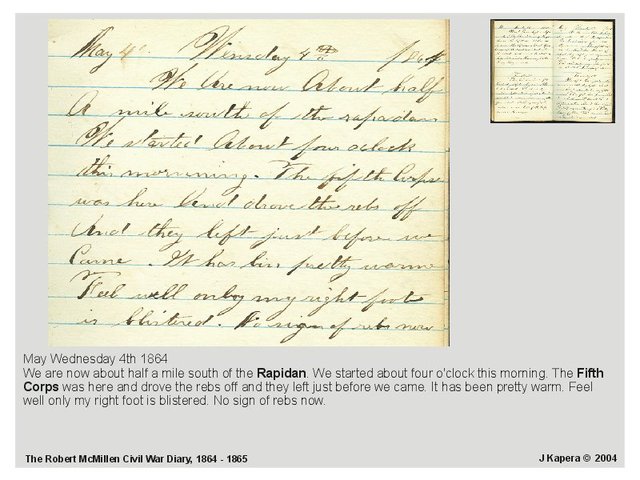 May 4th Wensday 4th 1864
We Are now About half
A mile south of the rapadan
We started About four oclock
this mornning. The fifth Corpse
was here And drove the rebs off
And they left just before we
Came. It has bin pretty warme
Feel well onley my right foot
is blistered. No sign of rebs now
May Wednesday 4th 1864
We are now about half a mile south of the Rapidan. We started about four o'clock this morning. The Fifth
Corps was here and drove the rebs off and they left just before we came. It has been pretty warm. Feel
well only my right foot is blistered. No sign of rebs now.
The Robert McMillen Civil War Diary, 1864 - 1865
J Kapera © 2004